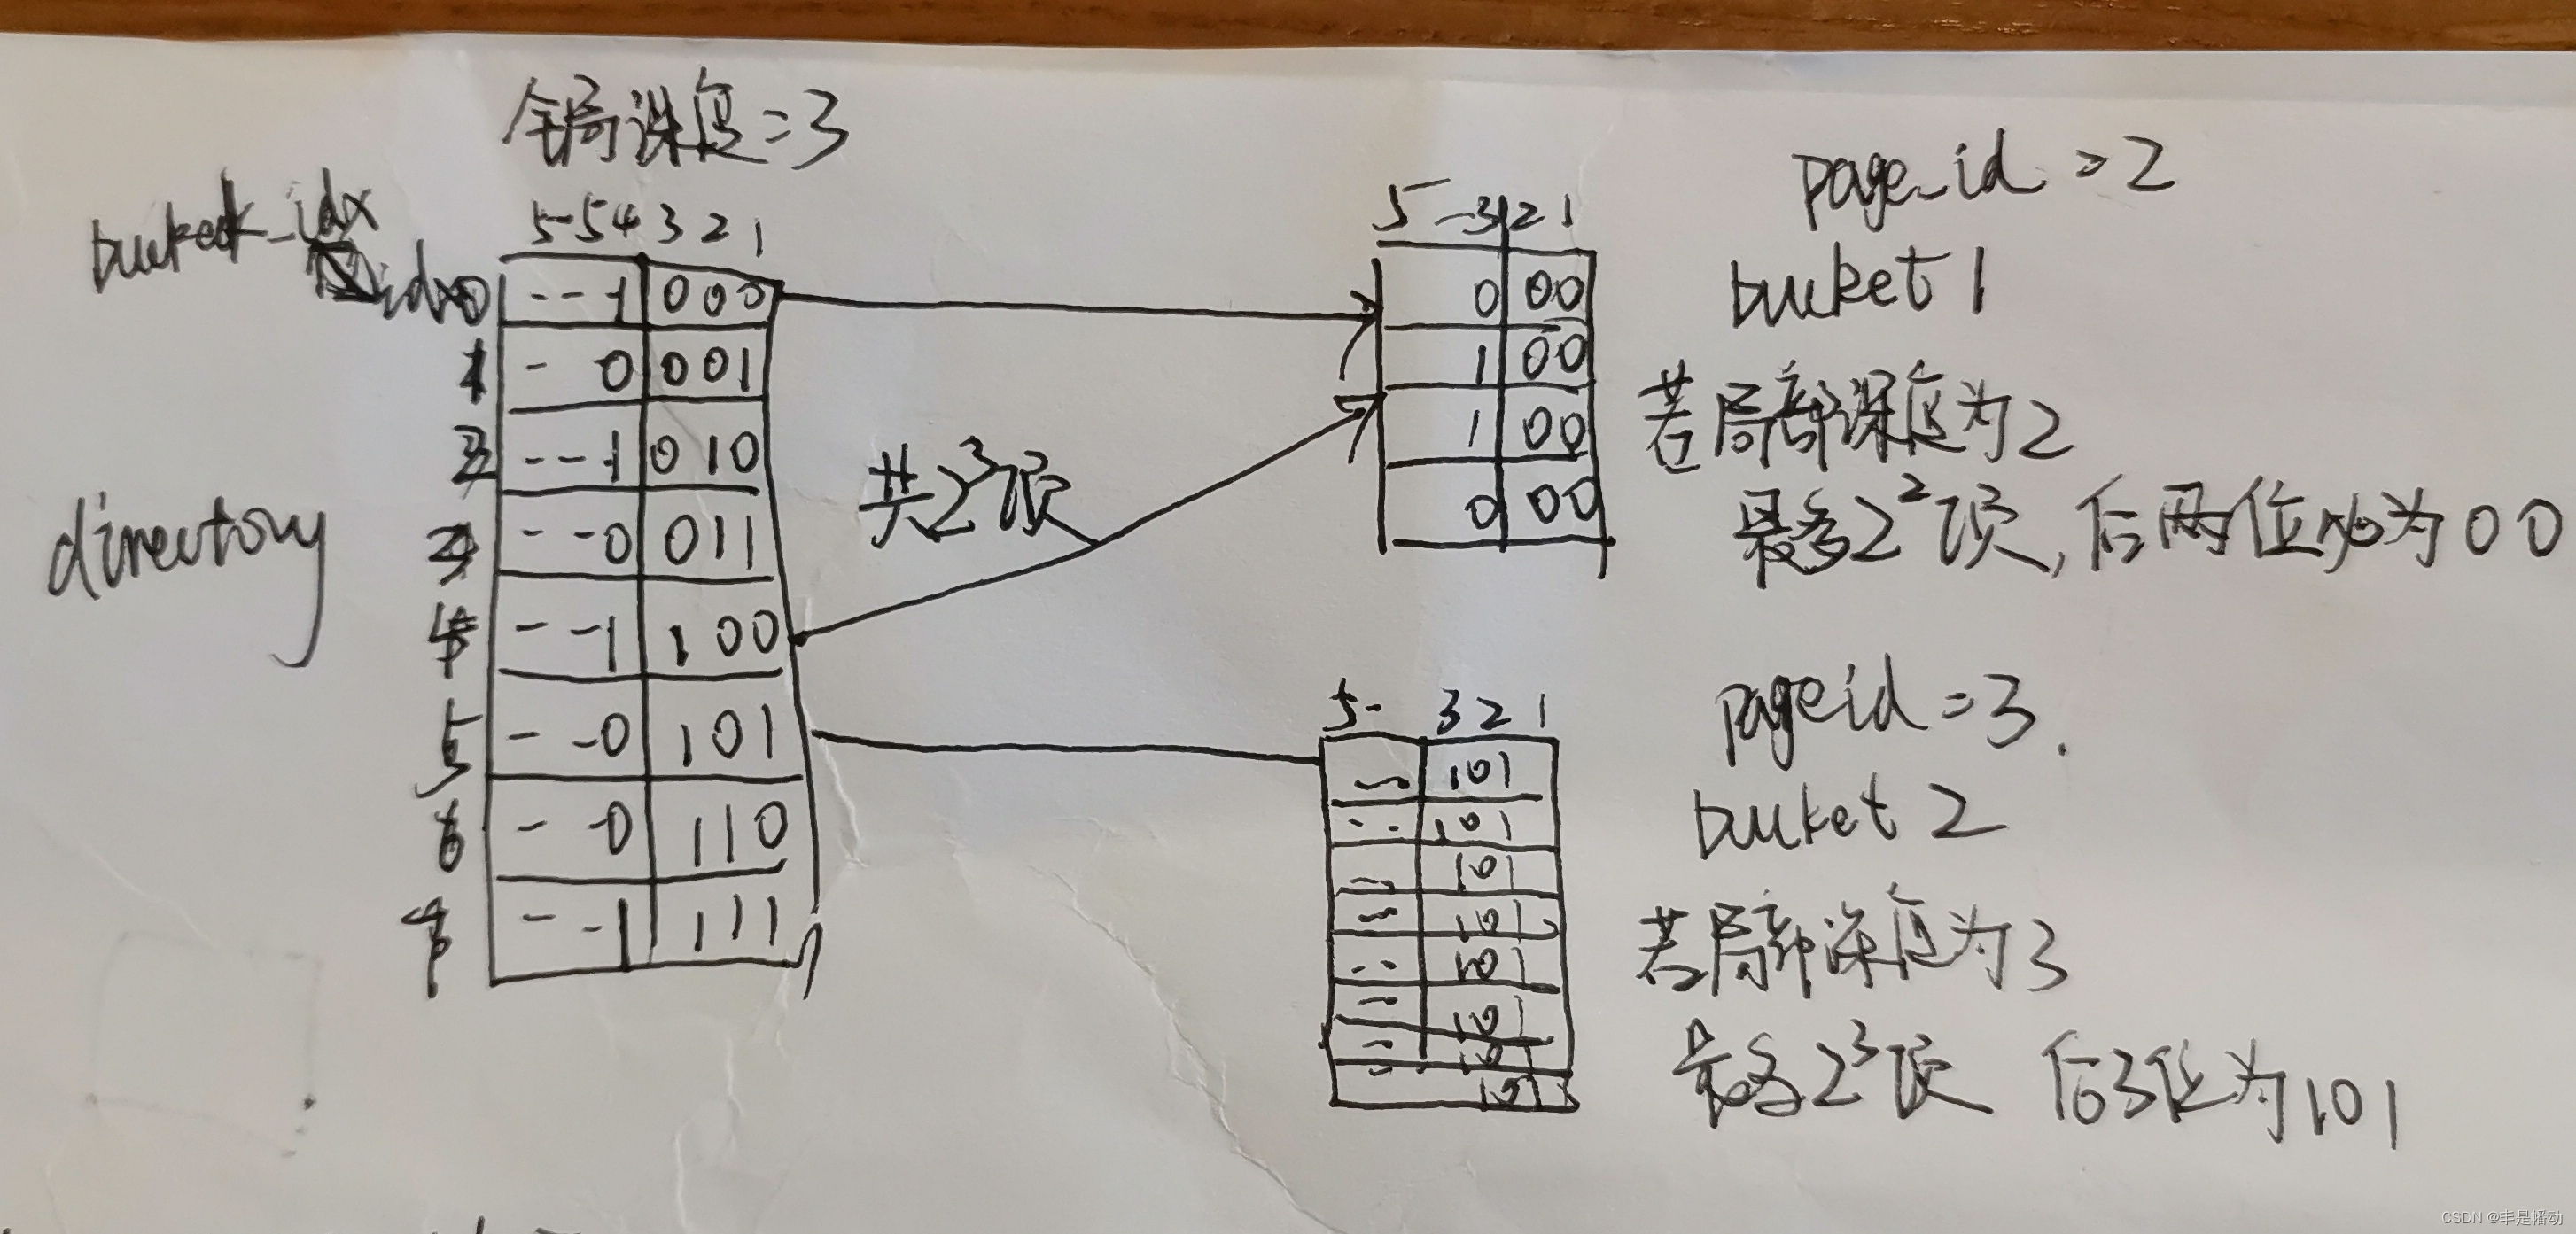 全局深度=3
bucket_idx
5-5 4 3 2 1
idx0 --1 000
1 - 0 001
2 --1 010
3 --0 011
4 --1 100
5 --0 101
6 - -0 110
7 --1 111
directory
共2³项
page_id=2
bucket 1
5-3 2 1
0 00
1 00
1 00
0 00
若局部深度为2
最多2²项,后两位必为00
pageid=3.
bucket 2
5- 3 2 1
-- 101
-- 101
-- 101
-- 101
-- 101
-- 101
-- 101
101
若局部深度为3
最多2³项 后3位为101
CSDN @丰是幡动